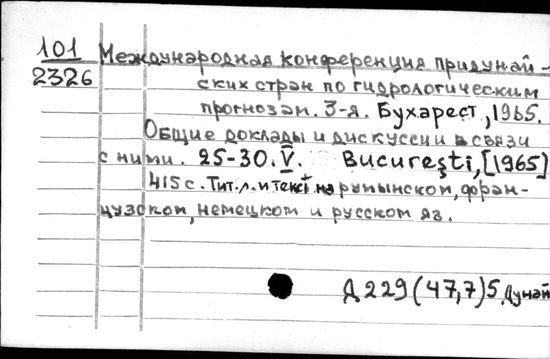 101 Международная конференция придунай-
2326 ских стран по гидрологическим
прогнозам. 3-я. Бухарест, 1965.
Общие доклады и дискуссии в связи
с ними. 25-30.V. Bucureşti, [1965]
415 с. Тит. л. и текст на румынском, фран-
цузском, немецком и русском яз.
Д 229(47,7)5. Дунай